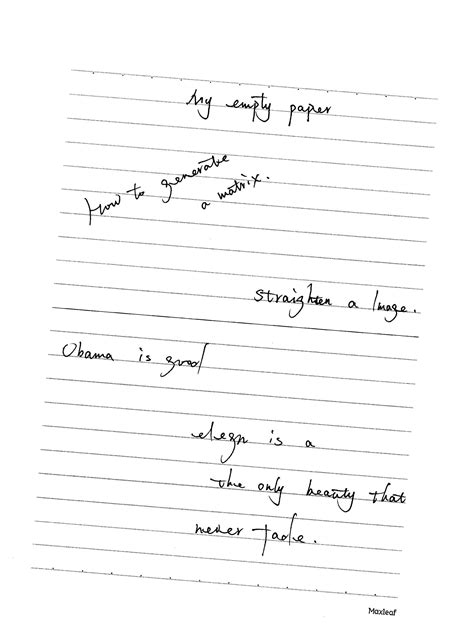 My empty paper
How to generate
a matrix.
straighten a Image.
Obama is good
is a
the only beauty that
never
Maxleaf